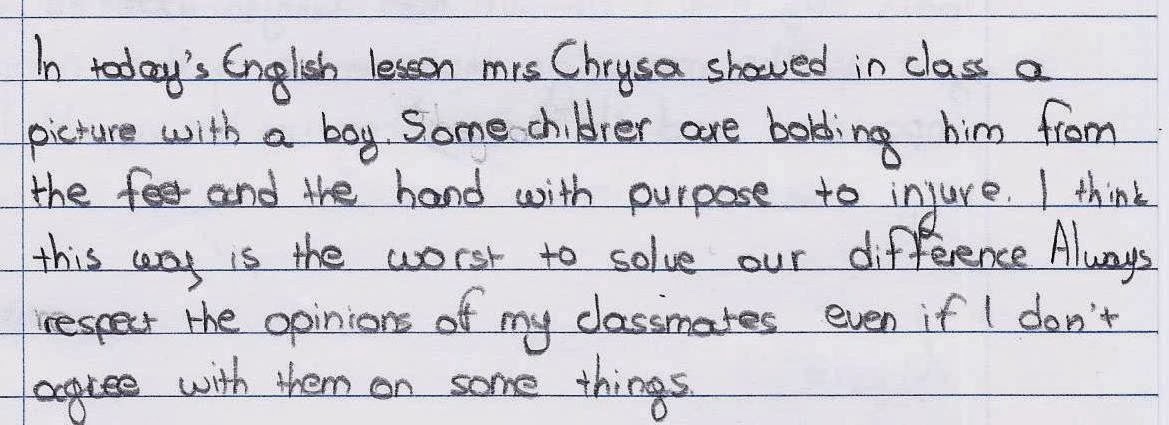 In today's English lesson mrs Chrysa showed in class a
picture with a boy. Some childrer are bolding him from
the feet and the hand with purpose to injure. I think
this way is the worst to solve our difference Always
respect the opinions of my classmates even if I don't
agree with them on some things.